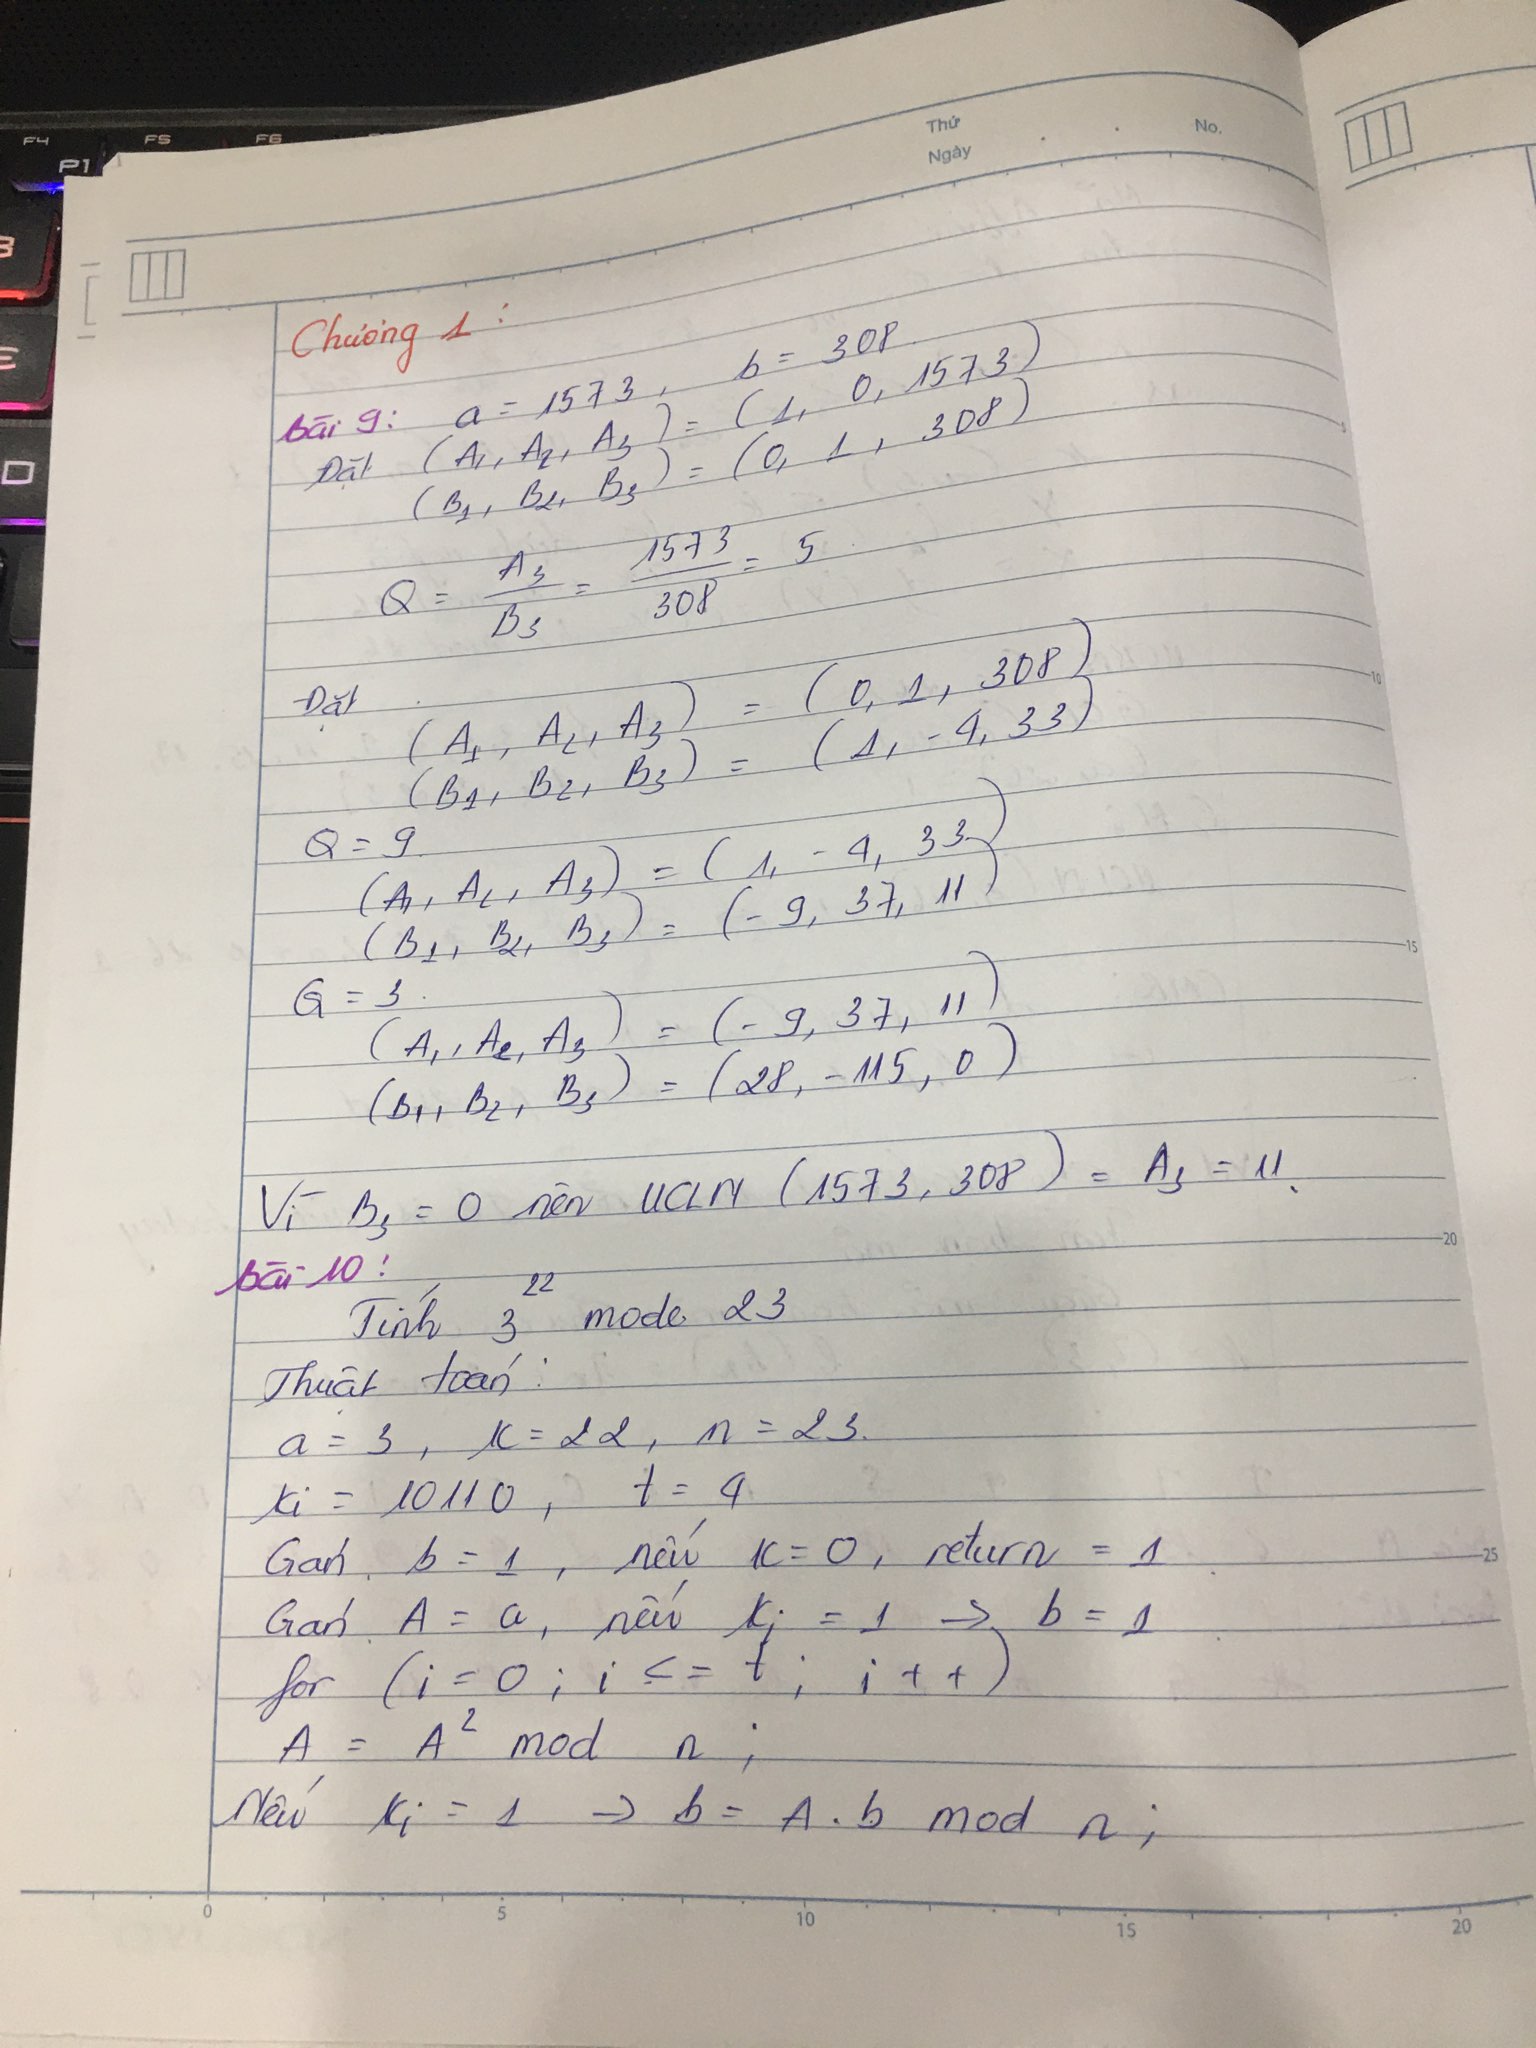 F4 F5 F6
P1
Thứ
Ngày
No.
Chương 1:
bài 9: a = 1573, b = 308
Đặt (A1, A2, A3) = (1, 0, 1573)
(B1, B2, B3) = (0, 1, 308)
Q = A3/B3 = 1573/308 = 5
Đặt
(A1, A2, A3) = (0, 1, 308)
(B1, B2, B3) = (1, -4, 33)
Q = 9
(A1, A2, A3) = (1, -4, 33)
(B1, B2, B3) = (-9, 37, 11)
G = 3
(A1, A2, A3) = (-9, 37, 11)
(B1, B2, B3) = (28, -115, 0)
Vì B3 = 0 nên UCLN (1573, 308) = A3 = 11.
bài 10:
Tính 3^22 mode 23
Thuật toán:
a = 3, K = 22, n = 23.
Ki = 10110, t = 4
Gán b = 1, nếu K = 0, return = 1
Gán A = a, nếu Ki = 1 → b = 1
for (i = 0; i <= t; i++)
A = A^2 mod n;
Nếu Ki = 1 → b = A.b mod n;
5
10
15
20
25
0 5 10 15 20